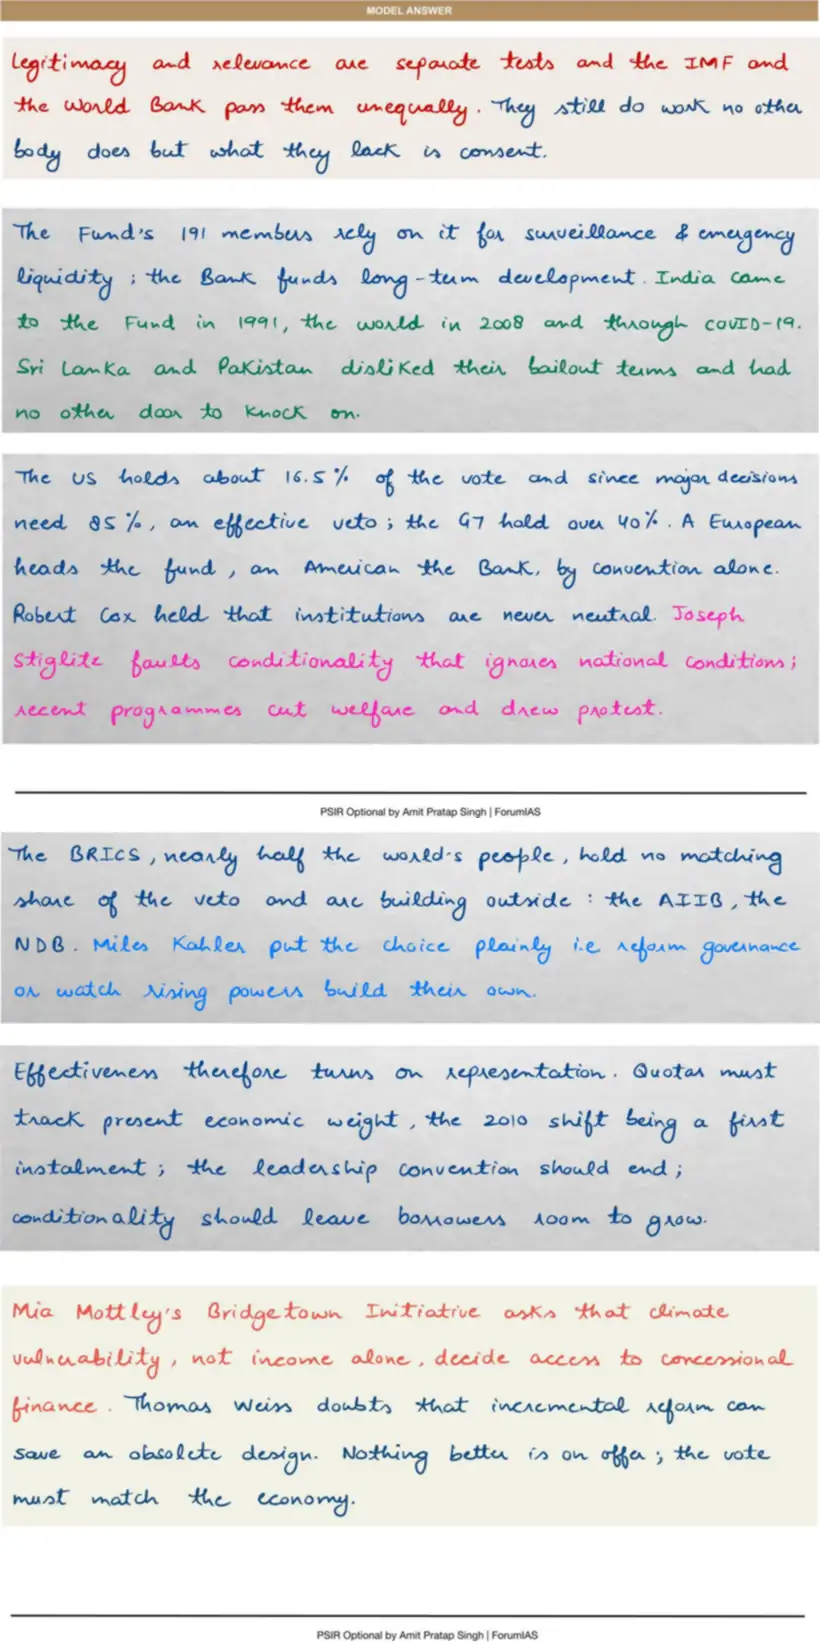 MODEL ANSWER
Legitimacy and relevance are separate tests and the IMF and
the World Bank pass them unequally. They still do work no other
body does but what they lack is consent.
The Fund's 191 members rely on it for surveillance & emergency
liquidity ; the Bank funds long-term development. India came
to the Fund in 1991, the world in 2008 and through COVID-19.
Sri Lanka and Pakistan disliked their bailout terms and had
no other door to knock on.
The US holds about 16.5% of the vote and since major decisions
need 85%, an effective veto ; the G7 hold over 40%. A European
heads the fund, an American the Bank, by convention alone.
Robert Cox held that institutions are never neutral. Joseph
Stiglitz faults conditionality that ignores national conditions ;
recent programmes cut welfare and drew protest.
PSIR Optional by Amit Pratap Singh | ForumIAS
The BRICS, nearly half the world's people, hold no matching
share of the veto and are building outside : the AIIB, the
NDB. Miles Kahler put the choice plainly i.e reform governance
or watch rising powers build their own.
Effectiveness therefore turns on representation. Quotas must
track present economic weight, the 2010 shift being a first
instalment ; the leadership convention should end ;
conditionality should leave borrowers room to grow.
Mia Mottley's Bridgetown Initiative asks that climate
vulnerability, not income alone, decide access to concessional
finance. Thomas Weiss doubts that incremental reform can
save an obsolete design. Nothing better is on offer ; the vote
must match the economy.
PSIR Optional by Amit Pratap Singh | ForumIAS